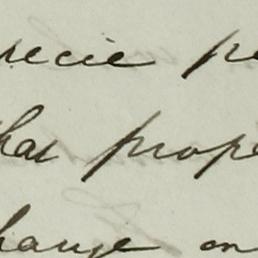 recie pe
that prope
hange on